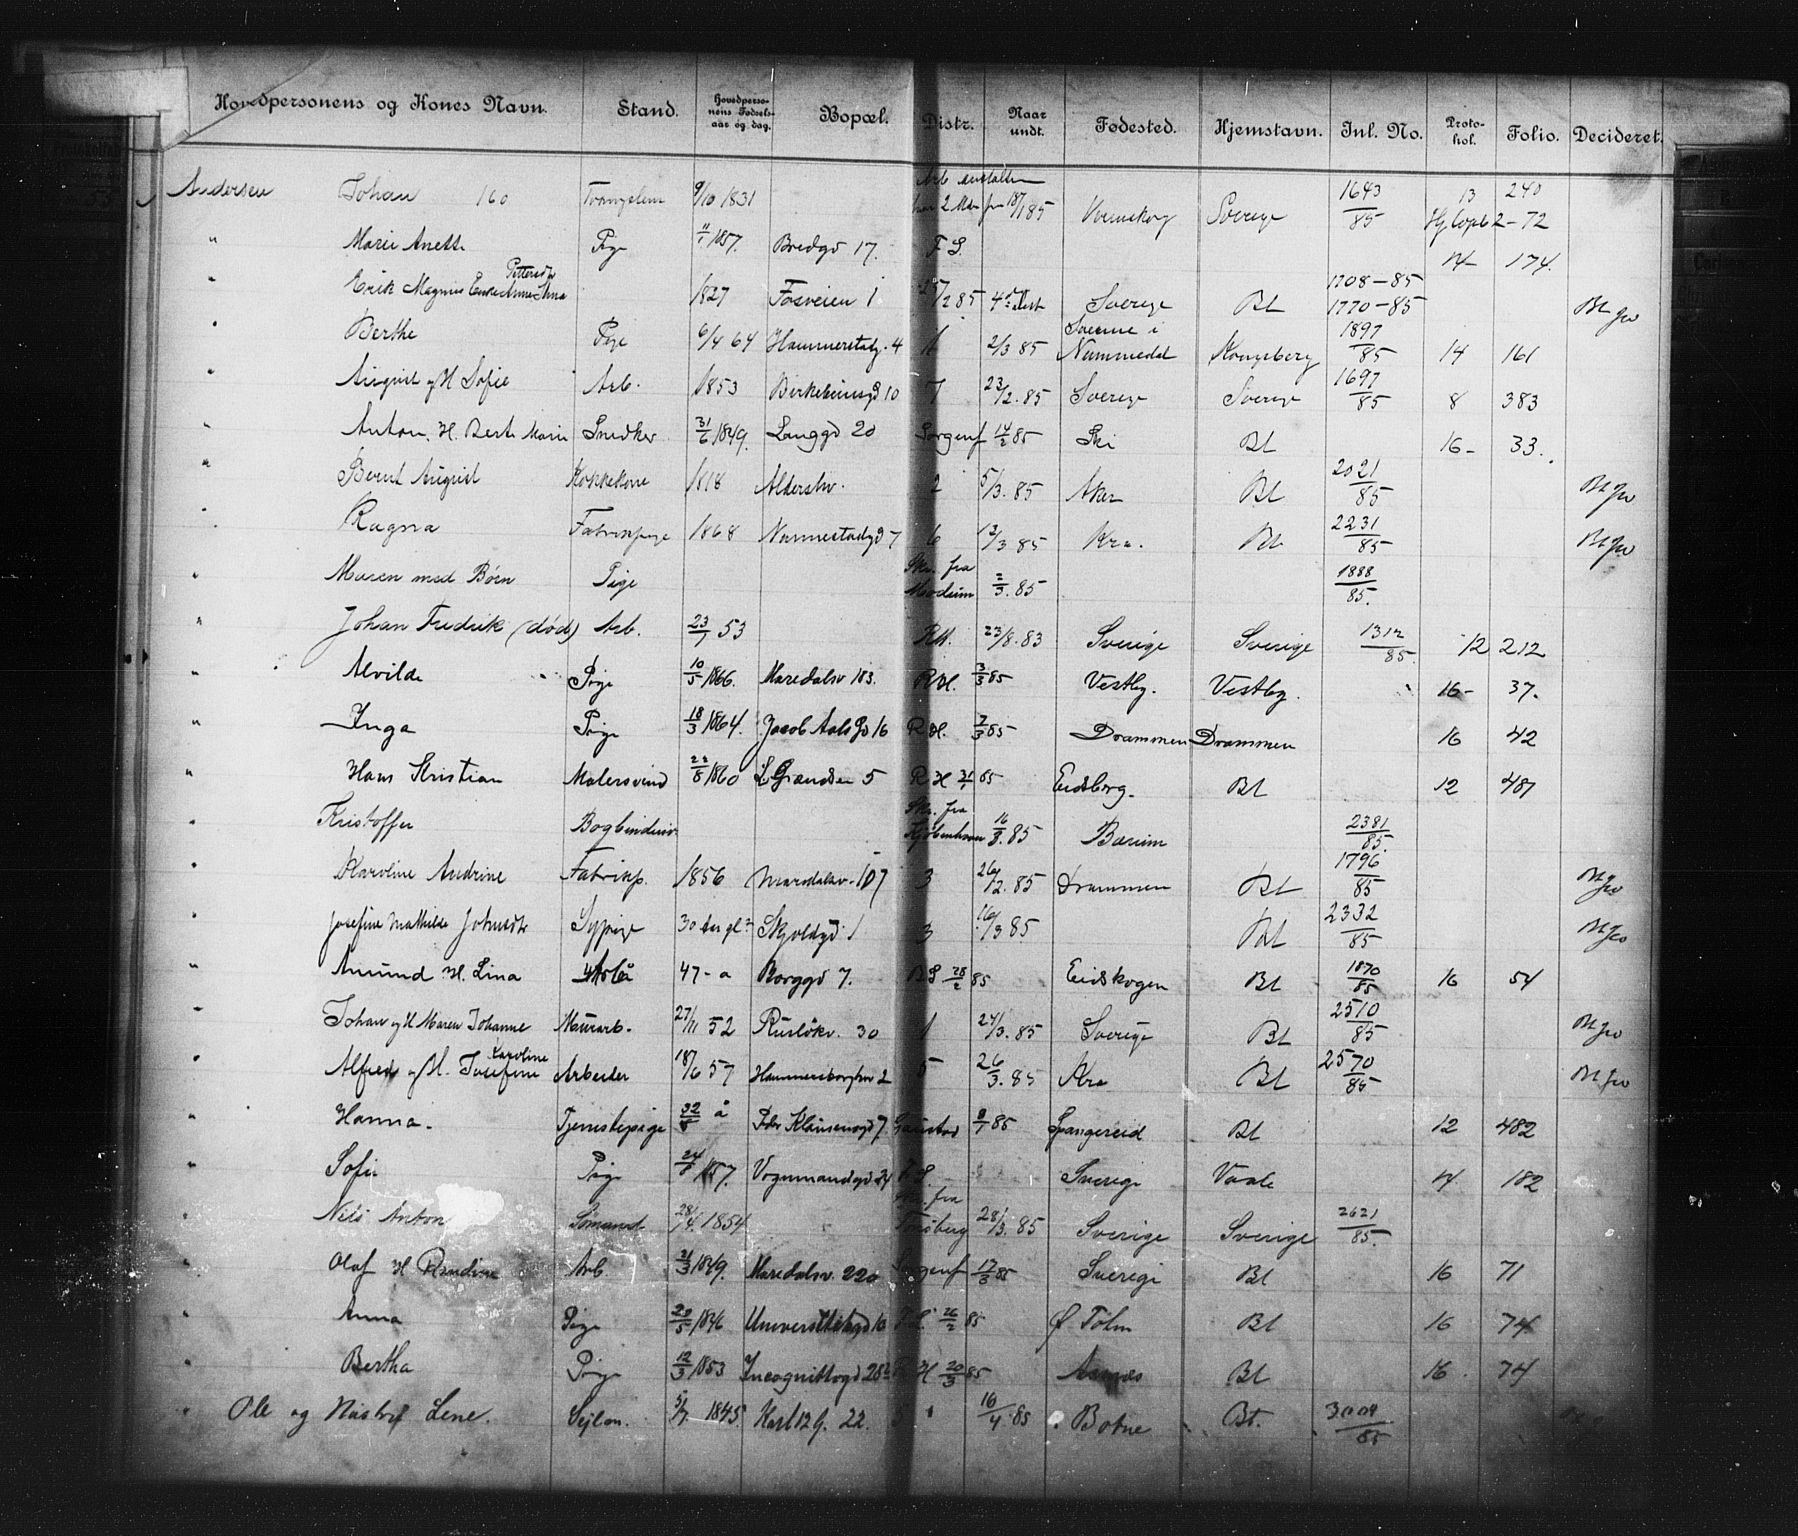 Hovedpersonens og Kones Navn. Stand. Hovedpersonens Fødselsaar og dag. Bopæl. Distr. Naar undt. Fødested. Hjemstavn. Inl. No. Protokol. Folio. Decideret.
Andersen Johan 160 9/10 1831 85 Sverige 1643/85 13 240
" Marie Anette Pige 1857. Bredgd 17. F S. 14 174.
" Erik Magnus 1827 Fosveien 1 85 Sverige Bt 1708-85 1770-85 Bt
" Berthe Pige 6/4 64 Hammerstadg. 4 1 2/3 85 Nummedal Kongsberg 1897/85 14 161
" August og H Sofie Arb. 1853 Birkebeinergd 10 7 23/2. 85 Sverige Sverige 1697/85 8 383
" Anton. H. Berte Marie Snedker 31/6 1849. Langgd 20 Sorgenf 14/2 85 Ski Bt 16- 33.
" Bernt August Kokkekone 1818 Aldershv. 2 5/3. 85 Aker Bt 2021/85 Bt
" Ragna Fabrikpige 1868 Nannestadgd 7 6 12/3 85 Kra. Bt 2231/85 Bt
" Maren med Børn Pige Skr. fra Modum 2/3. 85 1888/85.
" Johan Fredrik (død) Arb. 23/1 53 RH. 23/8. 83 Sverige Sverige 1312/85. 12 212
" Alvilde Pige 10/5 1866. Maredalsv 183. RH. 3/3 85 Vestby. Vestby. 16- 37.
" Inga Pige 18/3 1864. Jacob Aals Gd 16 RH. 7/3 85 Drammen Drammen 16 42
" Hans Kristian Malersvend 22/8 1860 L. Grændsen 5 RH 31/1 85 Eidsberg. Bt 12 487
" Kristoffer Bogbindersv. Skr. fra Kjøbenhavn 16/3. 85 Bærum 2381/85.
" Karoline Andrine Fabrikp. 1856 Maredalsv. 107 3 26/2. 85 Drammen Bt 1796/85 Bt
" Josefine Mathilde Johnsdtr Sypige 30 Skjoldgd 1 3 16/3 85 Bt 2332/85 Bt
" Amund H. Lina 47-a Borggd 7. 28/2 85 Eidskogen Bt 1870/85 16 54
" Johan og H Maren Johanne Murarb. 27/11 52 Rusløkv. 30 1 24/3. 85 Sverige Bt 2510/85 Bt
" Alfred og H. Josefine Karoline Arbeider 18/6 57 Hammersborgbk 2 5 26/3. 85 Kra Bt 2570/85 Bt
" Hanna. Tjenestepige å Peder Klausensgd 7 Gaustad 9/1 85 Spangereid Bt 12 482
" Sofie Pige 1857. Vognmandsgd 34 Sverige Vaale 14 182
" Nils Anton Sømand 28/4. 1854 fra Tønsberg 28/3. 85 Sverige Sverige 2621/85.
" Olaf H Randine Arb. 1849. Maredalsv. 220 Sorgenf 17/3 85 Sverige Bt 16 71
" Anna Pige 23/5 1846 Universitetsgd 16 26/2 85 Bt 16 74
" Bertha Pige 12/3 1853 Incognittogd 28 H 20/3 85 Bt 16. 74
" Ole og Hustru Lene. 1845 Karl 12 G. 22. 5 16/4. 85 Botne Bt. 3004/85